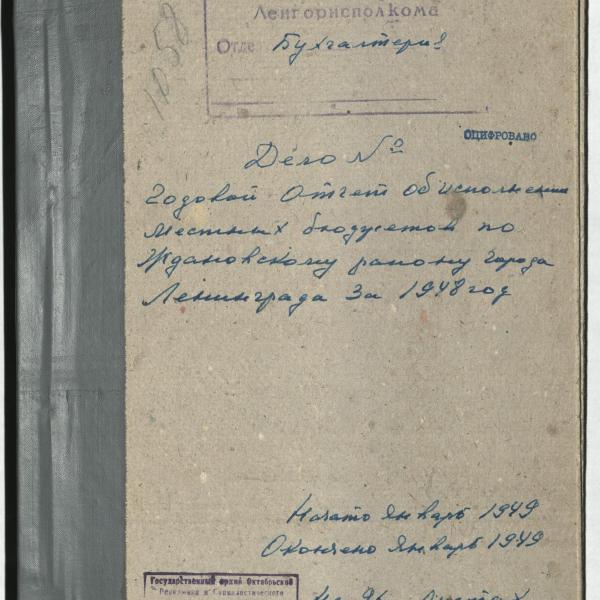 Ленгорисполкома
Отде Бухгалтерия
1058
ОЦИФРОВАНО
Дело №
Годовой Отчет об исполнении
местных бюджетом по
Ждановскому району города
Ленинграда За 1948 год
Начато Январь 1949
Окончено Январь 1949
Государственный архив Октябрьской
Революции и Социалистического
На листах